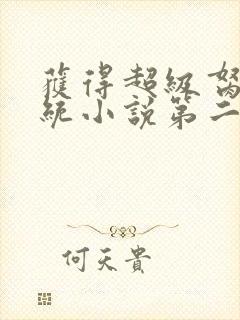 獲得超級
統小說第二
何天貴